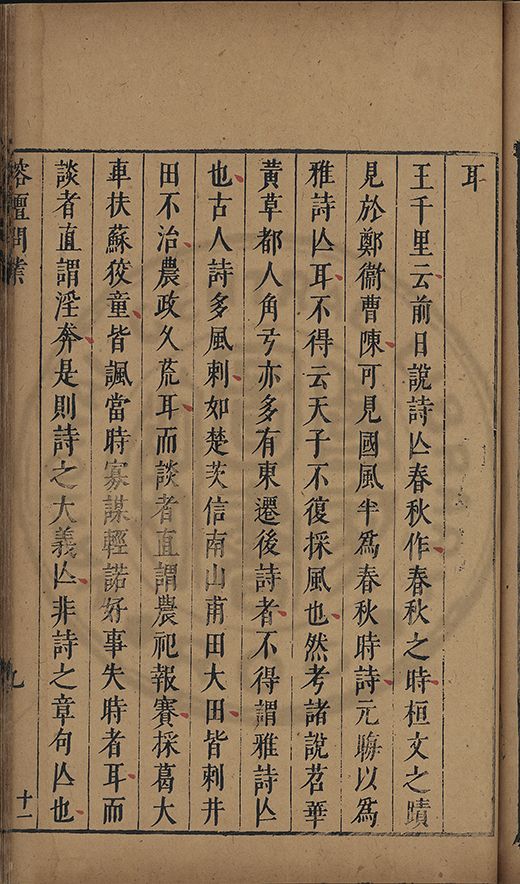 耳
王千里云前日說詩亾春秋作春秋之時桓文之蹟
見於鄭衞曹陳可見國風半爲春秋時詩元晦以爲
雅詩亾耳不得云天子不復採風也然考諸說苕華
黃草都人角弓亦多有東遷後詩者不得謂雅詩亾
也古人詩多風刺如楚茨信南山甫田大田皆刺井
田不治農政久荒耳而談者直謂農祀報賽採葛大
車扶蘇狡童皆諷當時寡謀輕諾好事失時者耳而
談者直謂淫奔是則詩之大義亾非詩之章句亾也
榕壇問業
九
十一